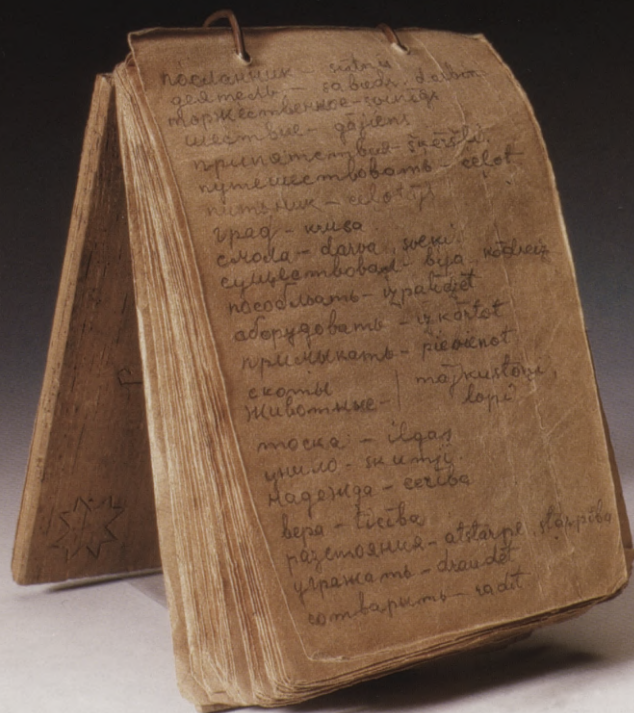 посланник – sūtņi
деятель – sabiedr. darbin
торжественное – svinīgs
шествие – gājiens
припятствия – šķēršļi.
путешествовать – ceļot
путьник – ceļotājs
град – krusa
смола – darva, sveķi
существовал – bija kādreiz
пособлять – izpalīdzēt
аборудовать – izkārtot
примыкать – pievienot
скоты
животные – mājkustoņi,
lopi
тоска – ilgas
уныло – skumji
надежда – cerība
вера – ticība
разстояния – atstarpe, starpība
угражать – draudēt
сотварыть – radīt